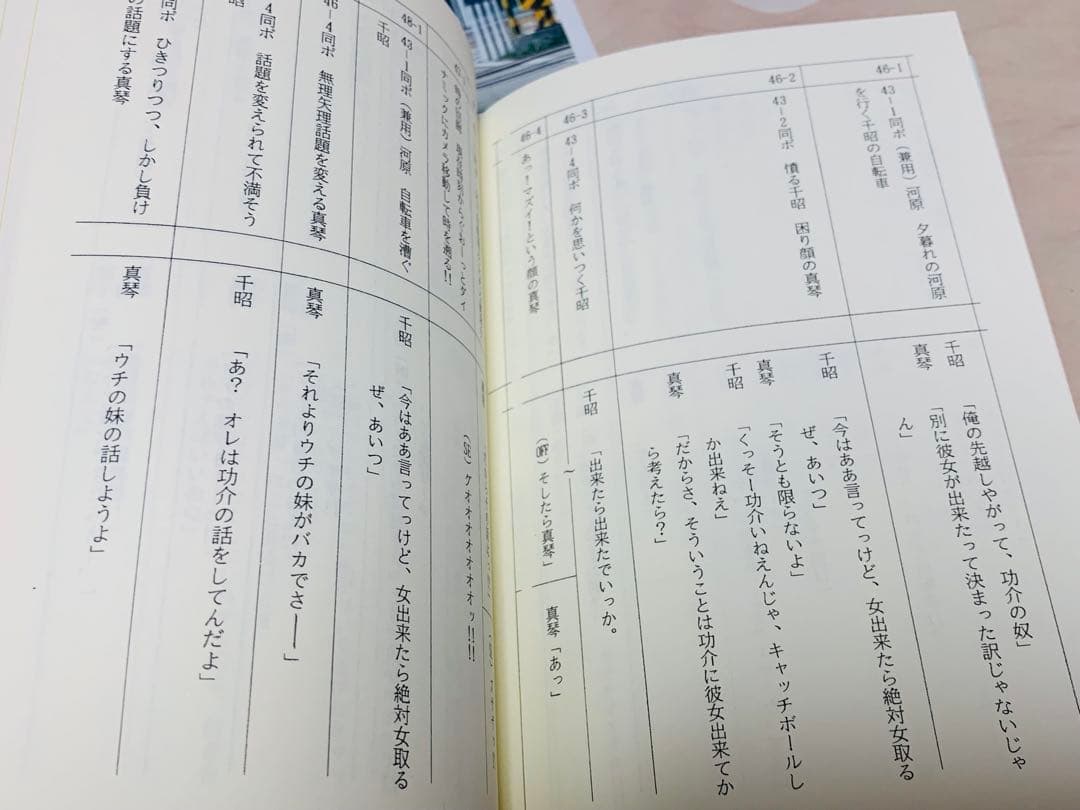 46-1
43－1同ポ（兼用）河原　夕暮れの河原
を行く千昭の自転車
千昭
「俺の先越しやがって、功介の奴」
真琴
「別に彼女が出来たって決まった訳じゃないじゃ
ん」
46-2
43－2同ポ　憤る千昭　困り顔の真琴
千昭
「今はああ言ってっけど、女出来たら絶対女取る
ぜ、あいつ」
真琴
「そうとも限らないよ」
千昭
「くっそー功介いねえんじゃ、キャッチボールし
か出来ねえ」
真琴
「だからさ、そういうことは功介に彼女出来てか
ら考えたら？」
46-3
43－4同ポ　何かを思いつく千昭
千昭
「出来たら出来たでいっか。
46-4
あっ！マズイ！という顔の真琴
（OFF）そしたら真琴」
真琴「あっ」
ナミックにカメラ移動して時を遡る！！
（SE）ケオオオオオオオッ！！！
48-1
43－1同ポ（兼用）河原　自転車を漕ぐ
千昭
千昭
「今はああ言ってっけど、女出来たら絶対女取る
ぜ、あいつ」
46－4同ポ　無理矢理話題を変える真琴
真琴
「それよりウチの妹がバカでさ――」
4同ポ　話題を変えられて不満そう
千昭
「あ？　オレは功介の話をしてんだよ」
同ポ　ひきつりつつ、しかし負け
の話題にする真琴
真琴
「ウチの妹の話しようよ」